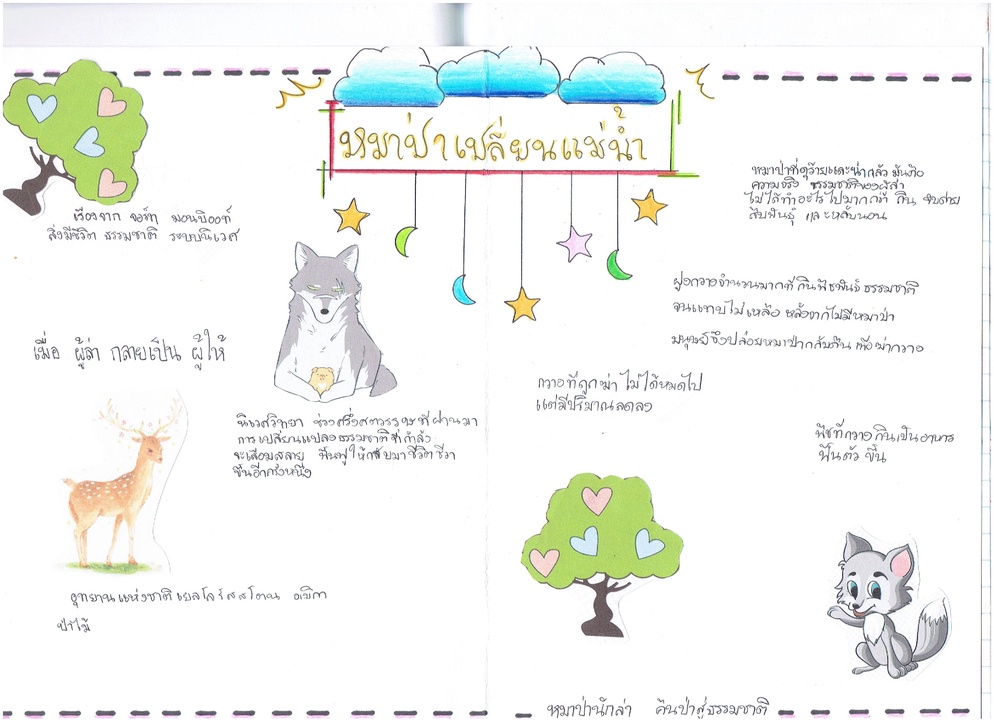 หมาป่าเปลี่ยนแม่น้ำ
เรื่องจาก จอร์ท มอนบิออท์
สิ่งมีชีวิต ธรรมชาติ ระบบนิเวศ
เมื่อ ผู้ล่า กลายเป็น ผู้ให้
นิเวศวิทยา ช่วงครึ่งศตวรรษที่ผ่านมา
การเปลี่ยนแปลงธรรมชาติที่กำลัง
จะเสื่อมสลาย ฟื้นฟูให้กลับมาชีวิตชีวา
ขึ้นอีกครั้งหนึ่ง
อุทยานแห่งชาติเยลโลว์สโตน
ป่าไม้
หมาป่าที่ดุร้ายและน่ากลัว มันคือ
ความจริง ธรรมชาติของผู้ล่า
ไม่ได้ทำอะไรไปมากกว่า กิน ขับถ่าย
สืบพันธุ์ และหลับนอน
ฝูงกวางจำนวนมากที่กินพืชพันธ์ธรรมชาติ
จนแทบไม่เหลือ หลังจากไม่มีหมาป่า
มนุษย์จึงปล่อยหมาป่ากลับคืน เพื่อฆ่ากวาง
กวางที่ถูกฆ่า ไม่ได้หมดไป
แต่มีปริมาณลดลง
พืชที่กวางกินเป็นอาหาร
ฟื้นตัว ขึ้น
หมาป่านักล่า คืนป่าสู่ธรรมชาติ